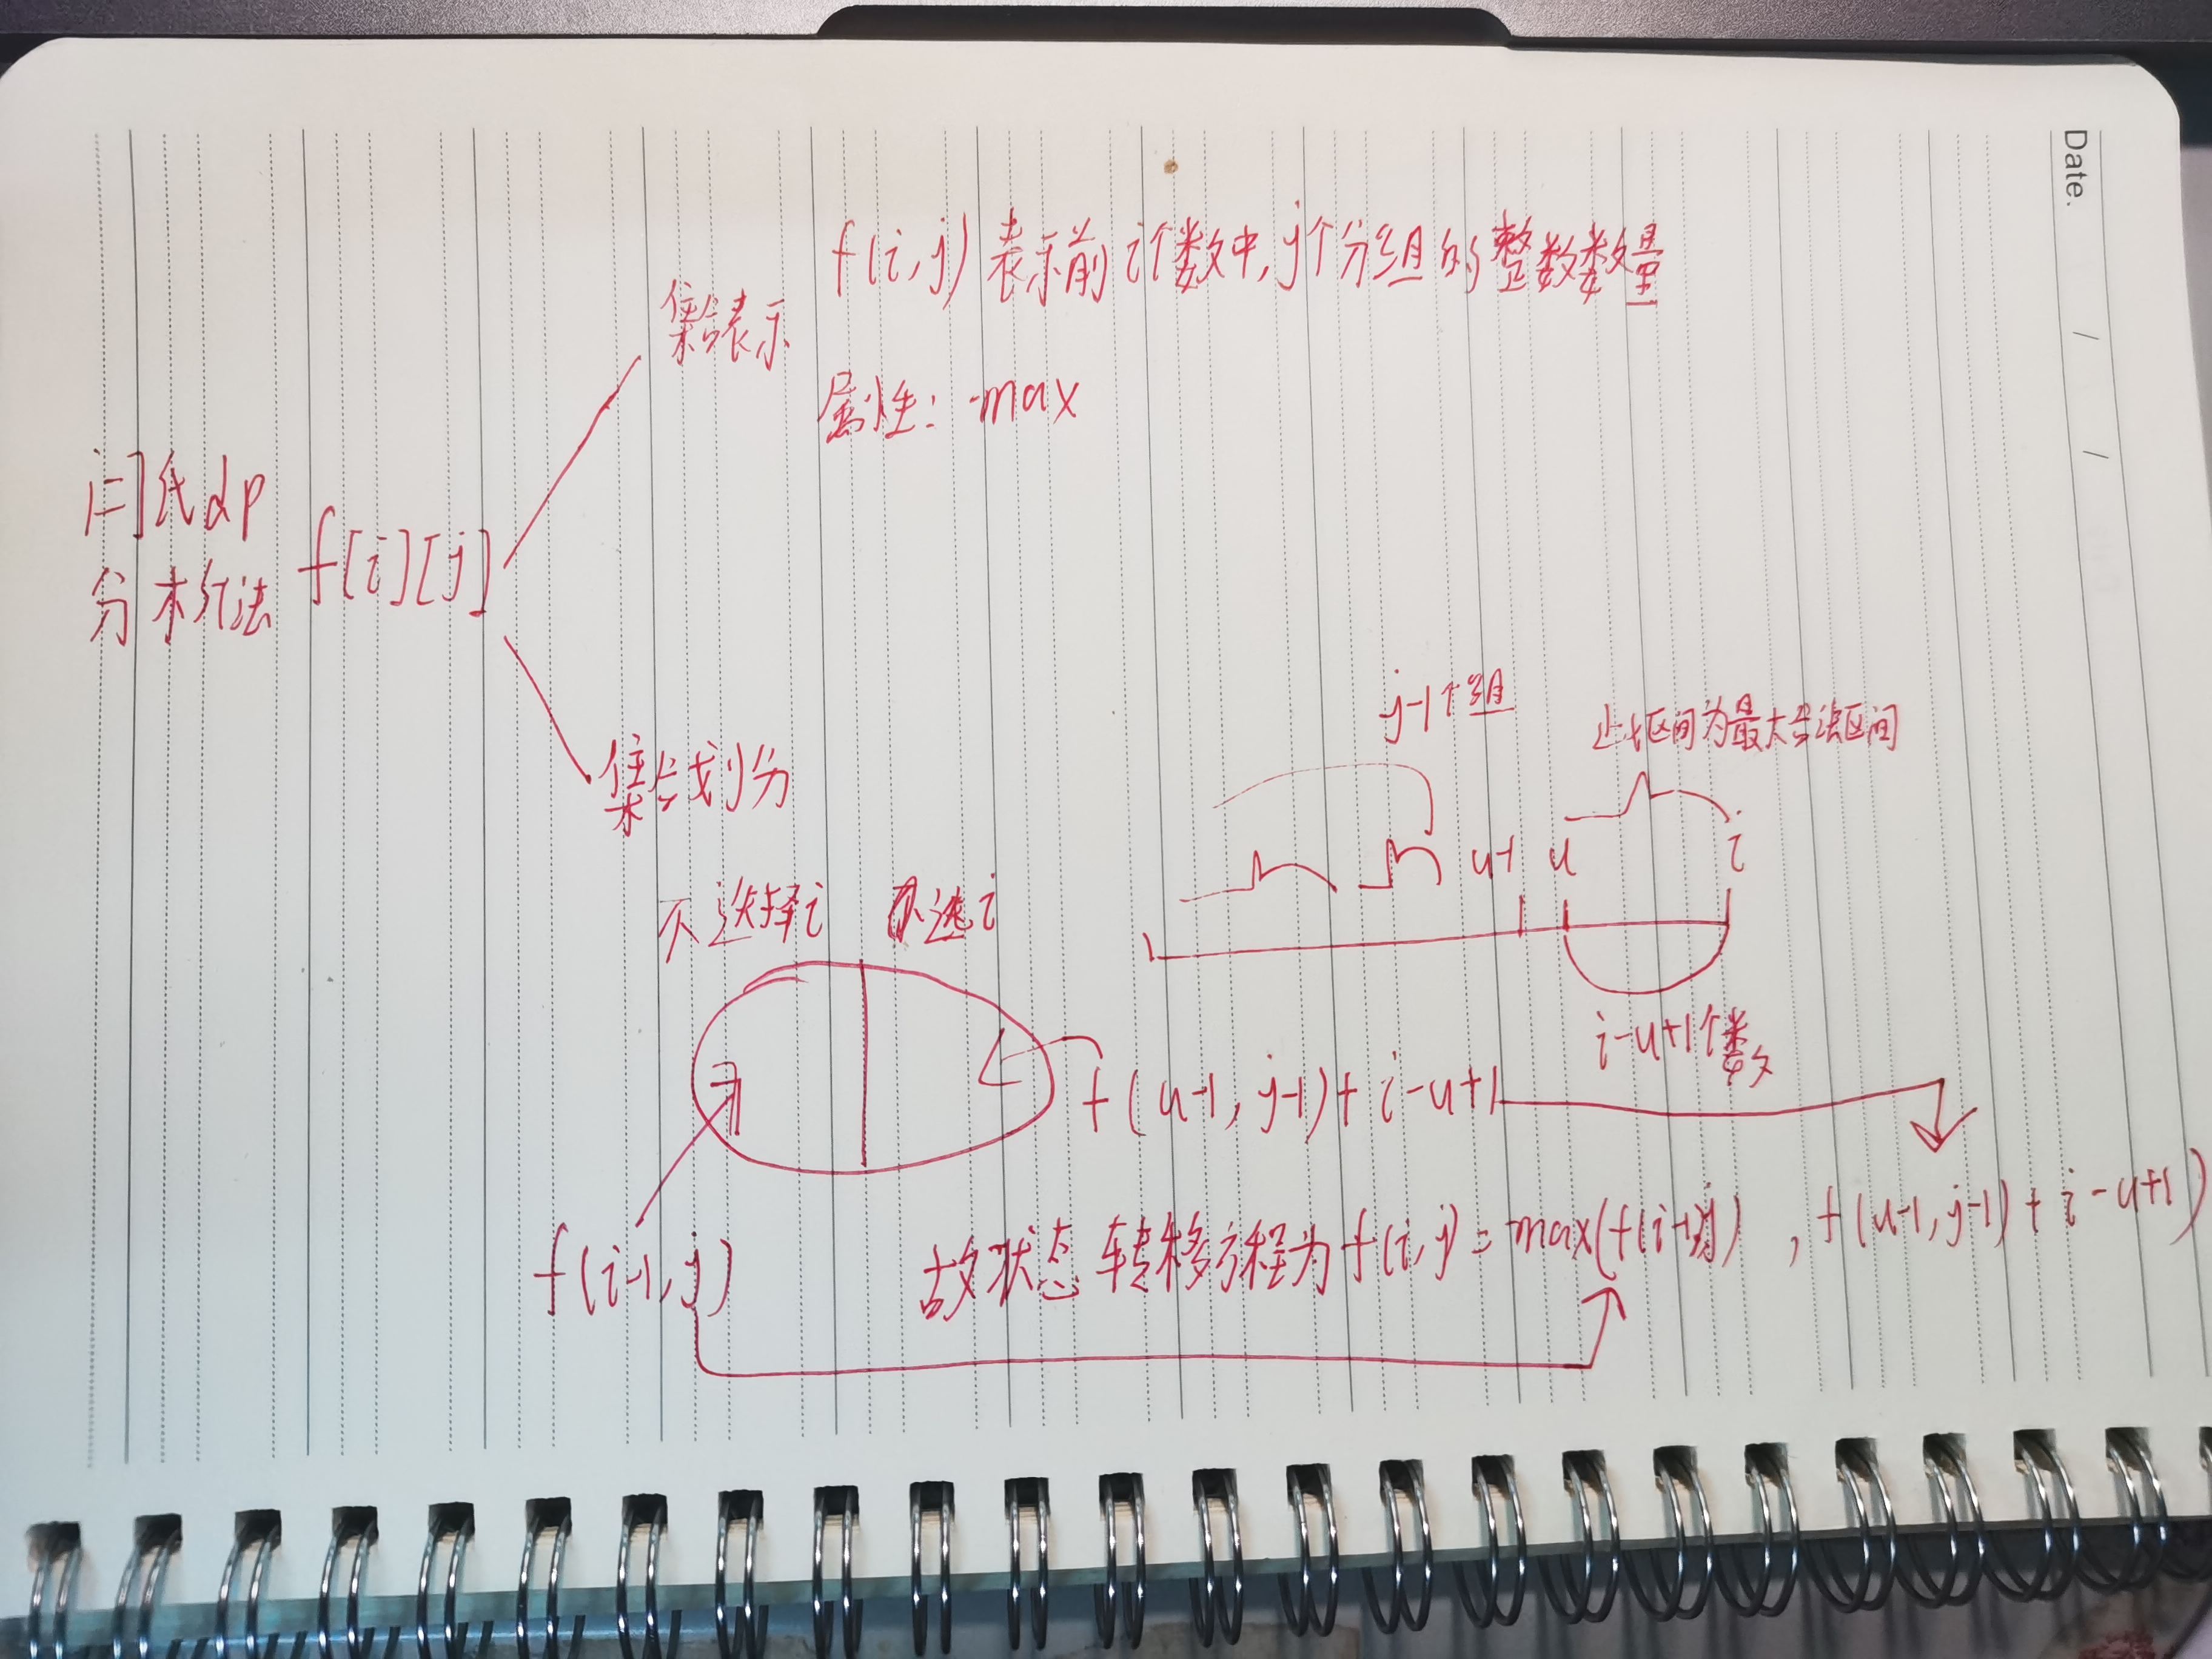 Date. / /
f(i,j)表示前i个数中,j个分组的整数数量
集合表示
属性: max
闫氏dp
分析法 f[i][j]
集合划分
j-1个组
此区间为最大合法区间
u-1 u i
不选择i 选i
i-u+1个数
f(u-1,j-1)+i-u+1
f(i-1,j)
故状态转移方程为f(i,j)=max(f(i-1,j),f(u-1,j-1)+i-u+1)